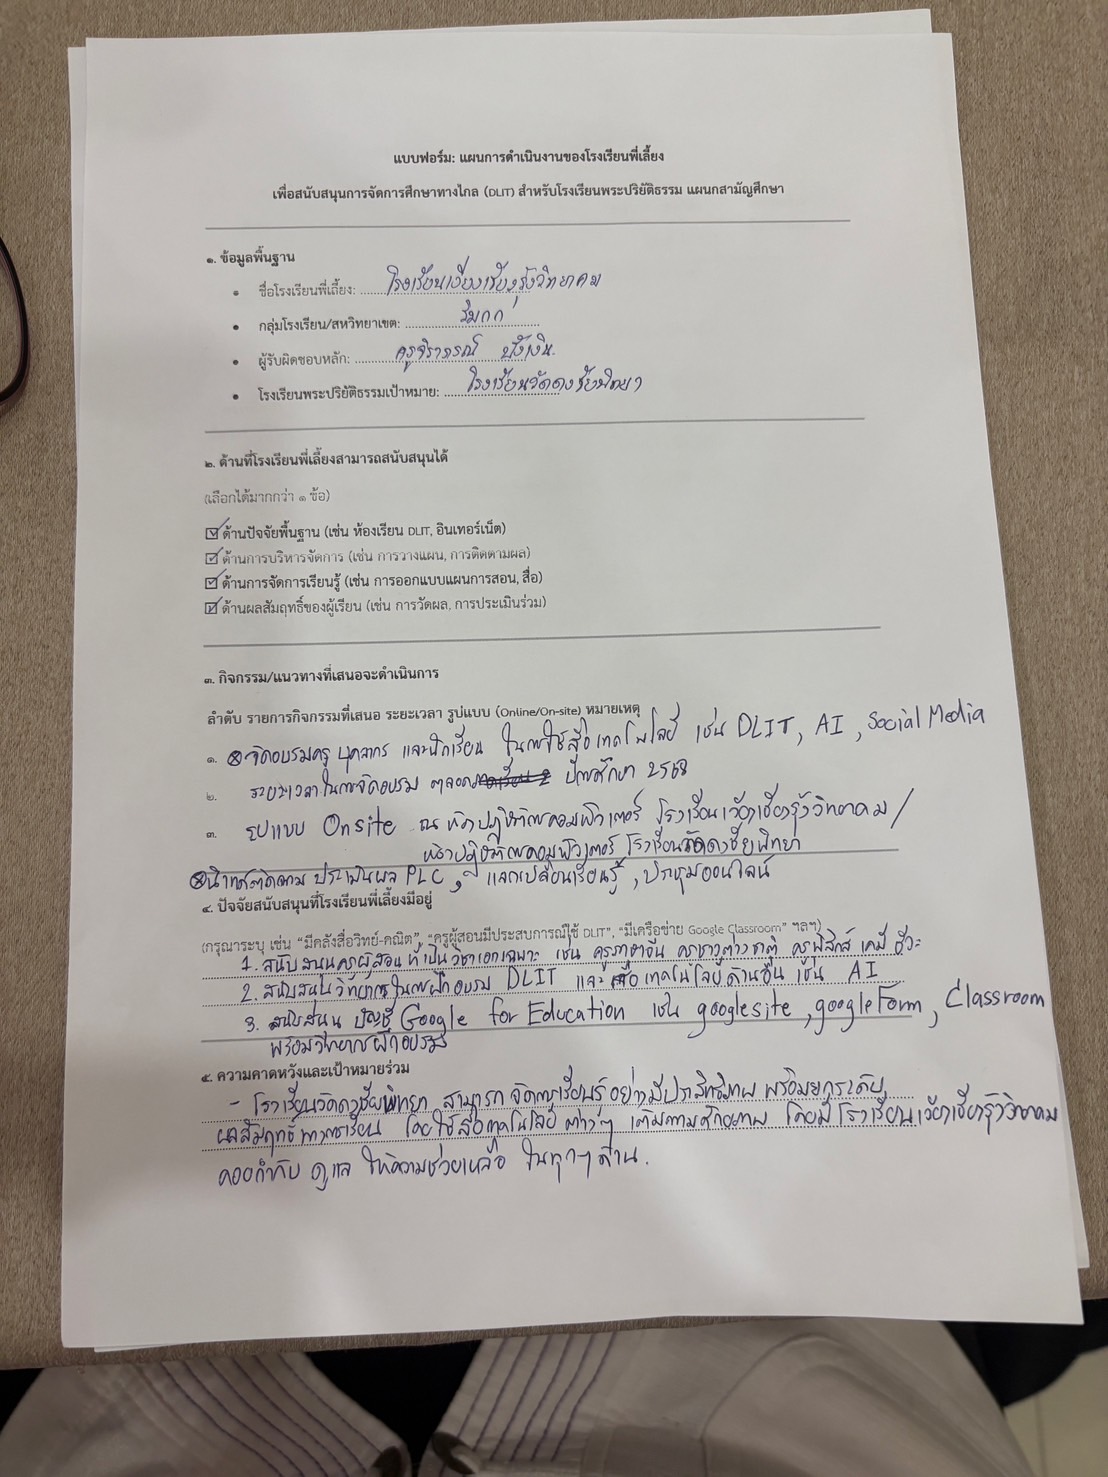 แบบฟอร์ม: แผนการดำเนินงานของโรงเรียนพี่เลี้ยง
เพื่อสนับสนุนการจัดการศึกษาทางไกล (DLIT) สำหรับโรงเรียนพระปริยัติธรรม แผนกสามัญศึกษา
๑. ข้อมูลพื้นฐาน
• ชื่อโรงเรียนพี่เลี้ยง: โรงเรียนเวียงเชียงรุ้งวิทยาคม
• กลุ่มโรงเรียน/สหวิทยาเขต: ริมกก
• ผู้รับผิดชอบหลัก: ครูจิราภรณ์
• โรงเรียนพระปริยัติธรรมเป้าหมาย: โรงเรียนวัดดงชัยพิทยา
๒. ด้านที่โรงเรียนพี่เลี้ยงสามารถสนับสนุนได้
(เลือกได้มากกว่า ๑ ข้อ)
☑ ด้านปัจจัยพื้นฐาน (เช่น ห้องเรียน DLIT, อินเทอร์เน็ต)
☑ ด้านการบริหารจัดการ (เช่น การวางแผน, การติดตามผล)
☑ ด้านการจัดการเรียนรู้ (เช่น การออกแบบแผนการสอน, สื่อ)
☑ ด้านผลสัมฤทธิ์ของผู้เรียน (เช่น การวัดผล, การประเมินร่วม)
๓. กิจกรรม/แนวทางที่เสนอจะดำเนินการ
ลำดับ รายการกิจกรรมที่เสนอ ระยะเวลา รูปแบบ (Online/On-site) หมายเหตุ
๑. จัดอบรมครู บุคลากร และนักเรียน ในการใช้สื่อเทคโนโลยี เช่น DLIT, AI, Social Media
๒. ระยะเวลาในการจัดอบรม ตลอด ปีการศึกษา 2568
๓. รูปแบบ Onsite ณ ห้องปฏิบัติการคอมพิวเตอร์ โรงเรียนเวียงเชียงรุ้งวิทยาคม/
ห้องปฏิบัติการคอมพิวเตอร์ โรงเรียนวัดดงชัยพิทยา
นิเทศติดตาม ประเมินผล PLC, แลกเปลี่ยนเรียนรู้, ประชุมออนไลน์
๔. ปัจจัยสนับสนุนที่โรงเรียนพี่เลี้ยงมีอยู่
(กรุณาระบุ เช่น “มีคลังสื่อวิทย์-คณิต”, “ครูผู้สอนมีประสบการณ์ใช้ DLIT”, “มีเครือข่าย Google Classroom” ฯลฯ)
1. สนับสนุนครูผู้สอน วิชาเอกเฉพาะ เช่น ครูภาษาจีน ครูชาวต่างชาติ ครูฟิสิกส์ เคมี ชีวะ
2. สนับสนุนวิทยากรในการฝึกอบรม DLIT และสื่อเทคโนโลยีด้านอื่น เช่น AI
3. สนับสนุน บัญชี Google for Education เช่น googlesite, googleForm, Classroom
พร้อมวิทยากรฝึกอบรม
๕. ความคาดหวังและเป้าหมายร่วม
- โรงเรียนวัดดงชัยพิทยา สามารถจัดการเรียนรู้อย่างมีประสิทธิภาพ พร้อมยกระดับ
ผลสัมฤทธิ์ทางการเรียน โดยใช้สื่อเทคโนโลยีต่างๆ เต็มตามศักยภาพ โดยมีโรงเรียนเวียงเชียงรุ้งวิทยาคม
คอยกำกับ ดูแล ให้ความช่วยเหลือ ในทุกๆ ด้าน.